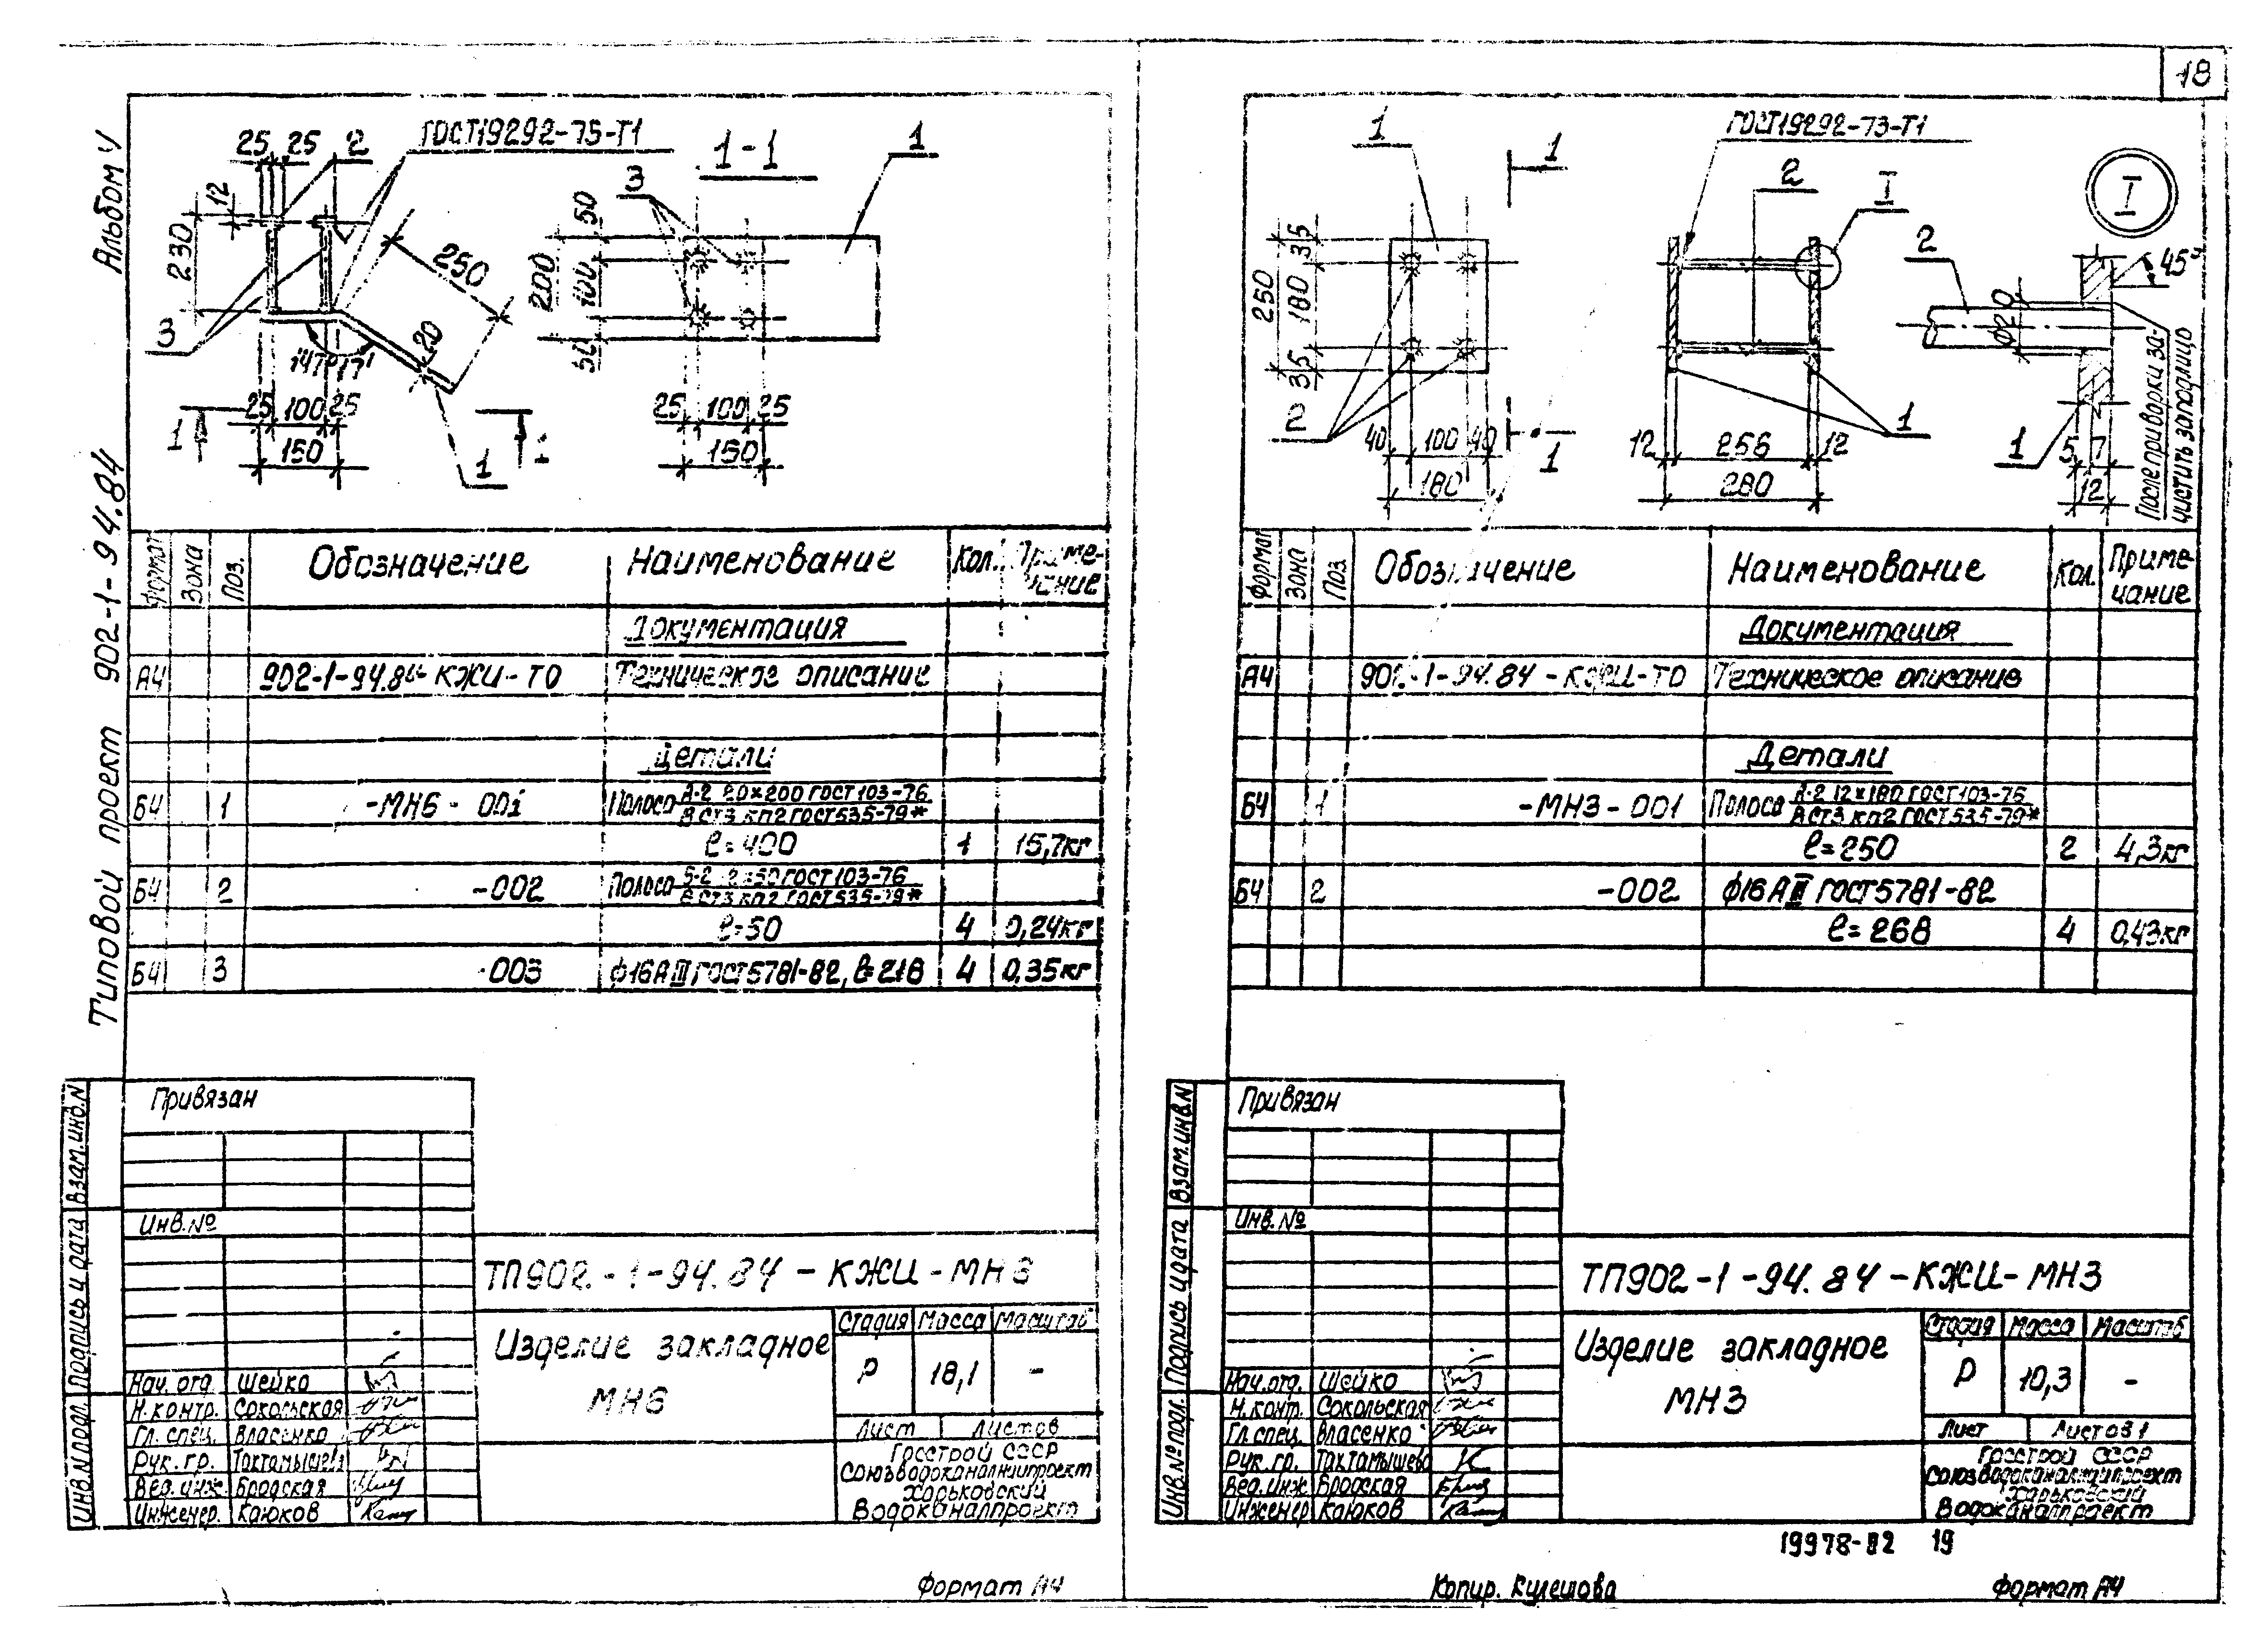 18
Альбом V
Типовой проект 902-1-94.84
25 25 2
ГОСТ19292-75-Т1
1-1
1
12
230
3
250
20
147°17'
3
25 100 25
150
1
1
1
50
200
100
50
3
25 100 25
150
Формат Зона Поз. Обозначение Наименование Кол. Приме-
чание
Документация
А4 902-1-94.84-КЖИ-ТО Техническое описание
Детали
Б4 1 -МН6-001 Полоса А-2 20×200 ГОСТ103-76
ВСт3 кп2 ГОСТ535-79*
ℓ=400 1 15,7кг
Б4 2 -002 Полоса Б-2 12×50 ГОСТ103-76
ВСт3 кп2 ГОСТ535-79*
ℓ=50 4 0,24кг
Б4 3 -003 ф16АIII ГОСТ5781-82, ℓ=218 4 0,35кг
Привязан
Инв.№
Взам.инв.N
Подпись и дата
Инв.N подл.
ТП902-1-94.84-КЖИ-МН6
Изделие закладное
МН6
Стадия Масса Масштаб
Р 18,1 -
Лист Листов
Госстрой СССР
Союзводоканалниипроект
Харьковский
Водоканалпроект
Нач. отд. Шейко
Н.контр. Сокольская
Гл. спец. Власенко
Рук. гр. Тахтамышева
Вед. инж. Бродская
Инженер. Каюков
Формат А4
1
1
ГОСТ19292-73-Т1
2
I
I
35
250
180
35
2
40 100 40
180
1
12 256 12
280
1
2
ф20
45°
1
5 7
12
После приварки за-
чистить заподлицо
Формат Зона Поз. Обозначение Наименование Кол. Приме-
чание
Документация
А4 902-1-94.84-КЖИ-ТО Техническое описание
Детали
Б4 1 -МН3-001 Полоса А-2 12×180 ГОСТ103-76
ВСт3 кп2 ГОСТ535-79*
ℓ=250 2 4,3кг
Б4 2 -002 ф16АIII ГОСТ5781-82
ℓ=268 4 0,43кг
Привязан
Инв.№
Взам.инв.N
Подпись и дата
Инв.№ подл.
ТП902-1-94.84-КЖИ-МН3
Изделие закладное
МН3
Стадия Масса Масштаб
Р 10,3 -
Лист Листов 1
Госстрой СССР
Союзводоканалниипроект
Харьковский
Водоканалпроект
Нач.отд. Шейко
Н.конт. Сокольская
Гл.спец. Власенко
Рук.гр. Тахтамышева
Вед.инж. Бродская
Инженер Каюков
19978-02 19
Копир. Кулешова
Формат А4